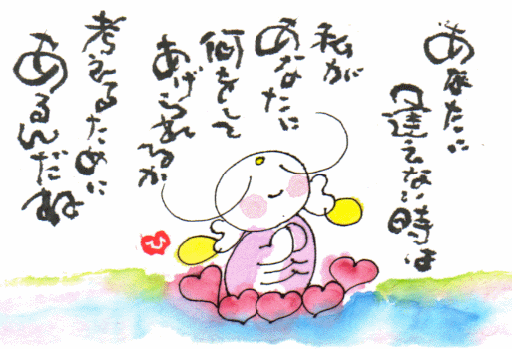 あなたに
逢えない時は
私が
あなたに
何をして
あげられるか
考えるために
あるんだね